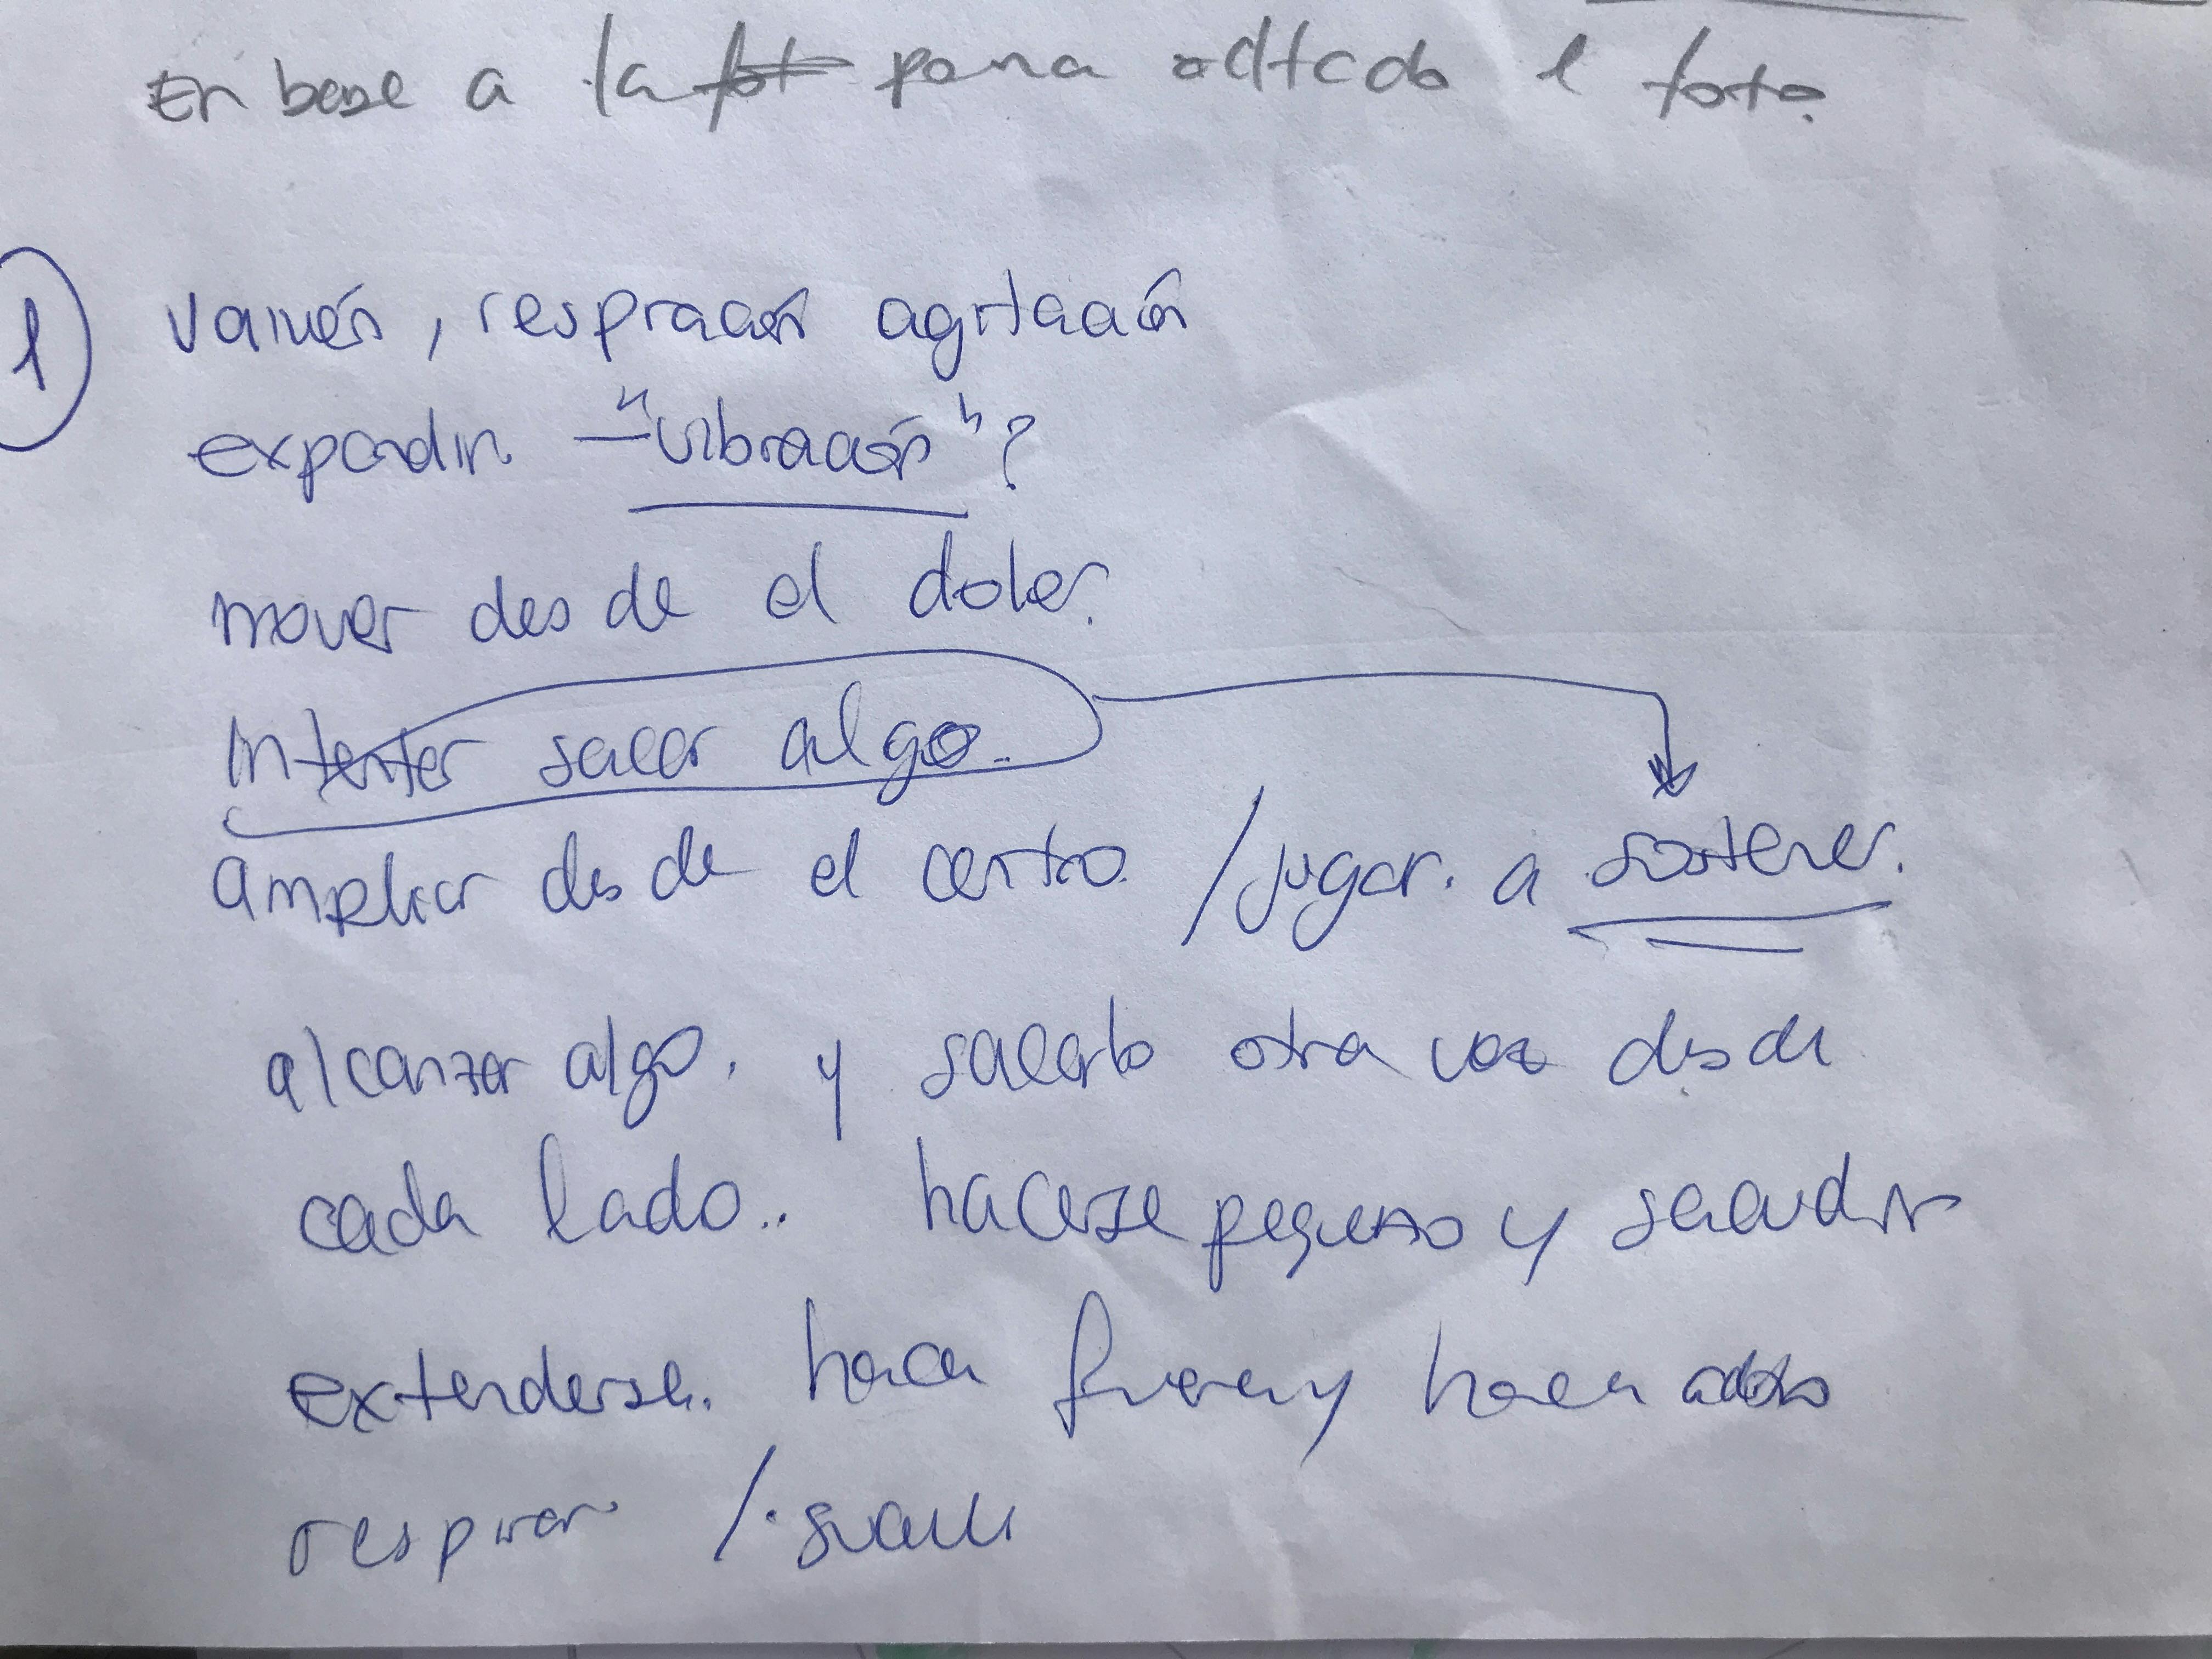 En base a la
① vaivén, respiración agitación
expandir – "vibración"?
mover desde el dolor.
Intentar sacar algo.
ampliar desde el centro. / jugar. a sostener.
alcanzar algo. y sacarlo otra vez desde
cada lado.. hacerse pequeño y sacudir
extenderse. hacia fuera y hacia adentro
respirar / suave